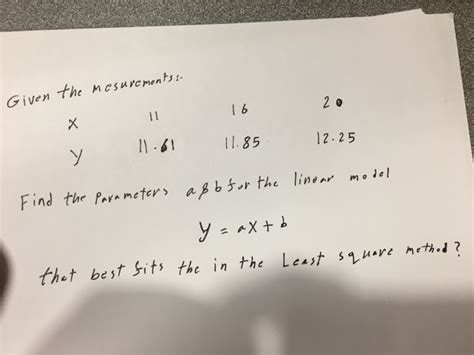 Given the mesurements:.
x 11 16 20
y 11.61 11.85 12.25
Find the Parameters a & b for the linear model
y = ax + b
that best fits the in the Least square method?